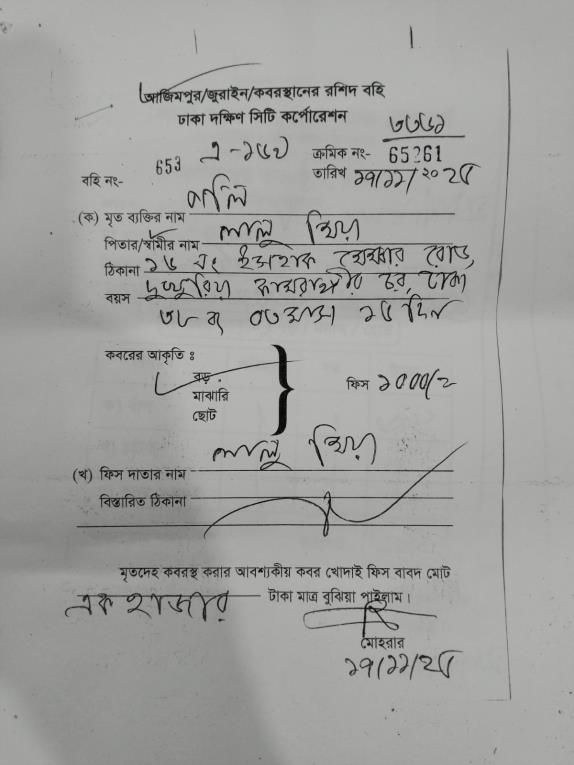 আজিমপুর/জুরাইন/কবরস্থানের রশিদ বহি
ঢাকা দক্ষিণ সিটি কর্পোরেশন
বহি নং- 653
ক্রমিক নং- 65261
তারিখ ১৭/১১/২০২৫
(ক) মৃত ব্যক্তির নাম
পিতার/স্বামীর নাম লালু মিয়া
ঠিকানা ১৬ রোড,
বয়স চর, ঢাকা
৩৮ ০৩ মাস ১৫ দিন
কবরের আকৃতি ঃ
বড়
মাঝারি
ছোট
ফিস ১০০০/=
লালু মিয়া
(খ) ফিস দাতার নাম
বিস্তারিত ঠিকানা
মৃতদেহ কবরস্থ করার আবশ্যকীয় কবর খোদাই ফিস বাবদ মোট
এক হাজার টাকা মাত্র বুঝিয়া পাইলাম।
মোহরার
১৭/১১/২৫